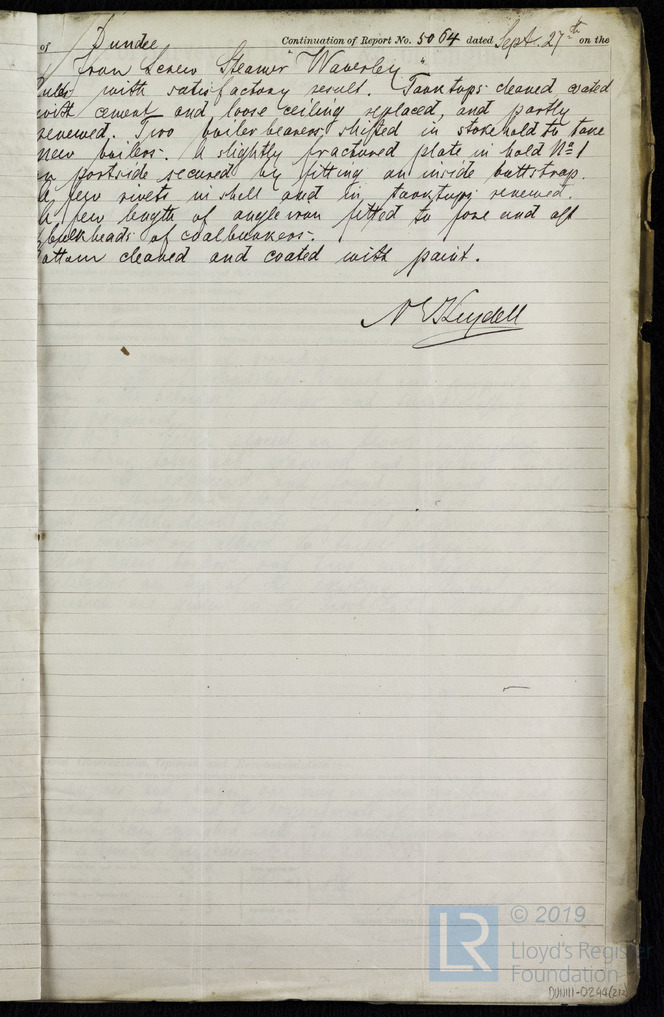 of Dundee Continuation of Report No. 5064 dated Sept. 27th on the
Iron Screw Steamer "Waverley"
with satisfactory result. Tanktops cleaned coated
with cement and loose ceiling replaced, and partly
renewed. Two boilerbearers shifted in stokehold to take
new boilers. A slightly fractured plate in hold No 1
on portside secured by fitting an inside buttstrap.
A few rivets in shell and in tanktops renewed.
A few length of angleiron fitted to fore and aft
bulkheads of coalbunkers.
ottom cleaned and coated with paint.
Keydell
© 2019
LR
Lloyd's Register
Foundation
DUN111-0244(212)